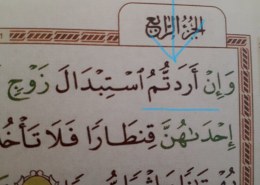 الجزء الرابع
وَإِنْ أَرَدتُّمُ ٱسْتِبْدَالَ زَوْجٍ
إِحْدَىٰهُنَّ قِنطَارًا فَلَا تَأْخُذُ